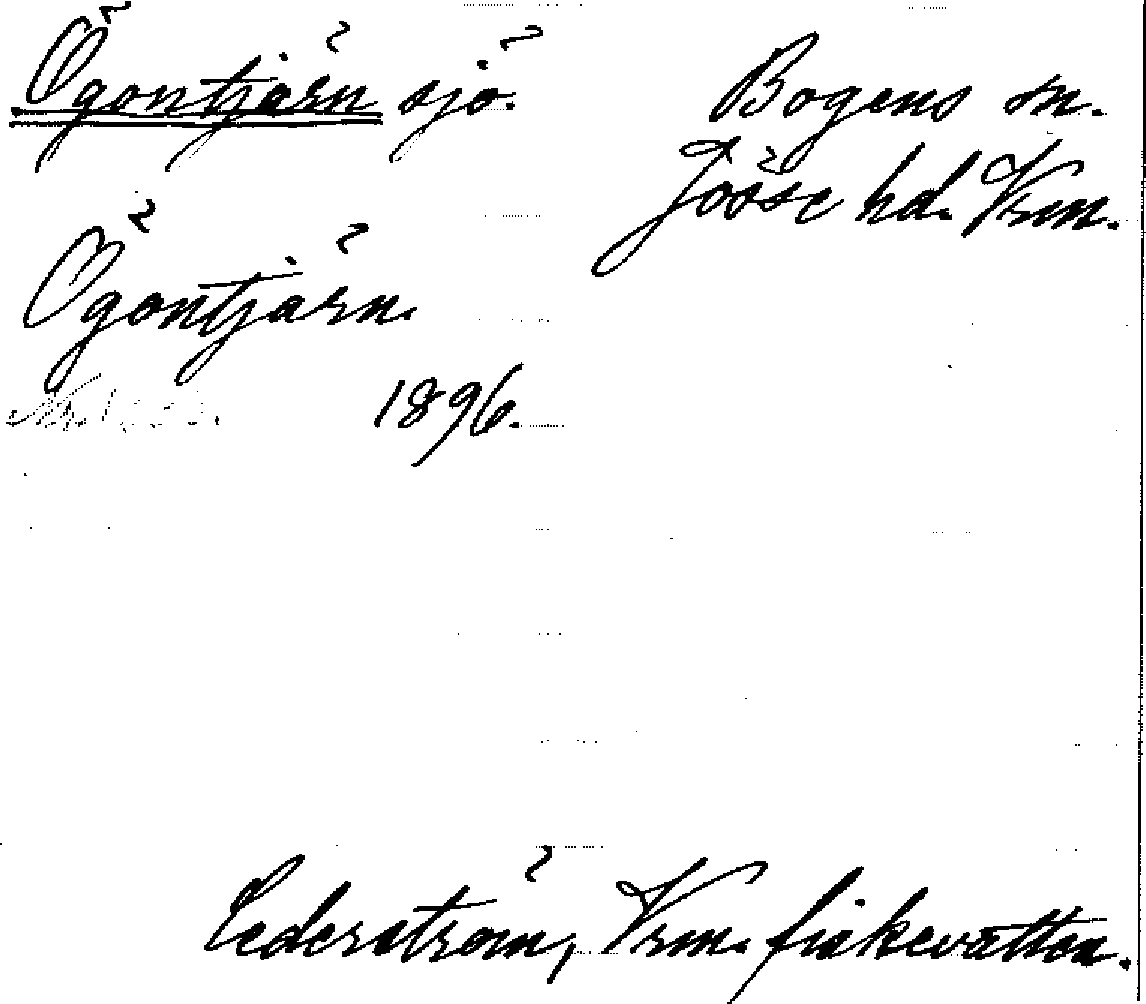 Ögontjärn sjö.
Bogens sn.
Jösse hd. Vrm.
Ögontjärn.
1896.
Cederström, Vrm. fiskevatten.